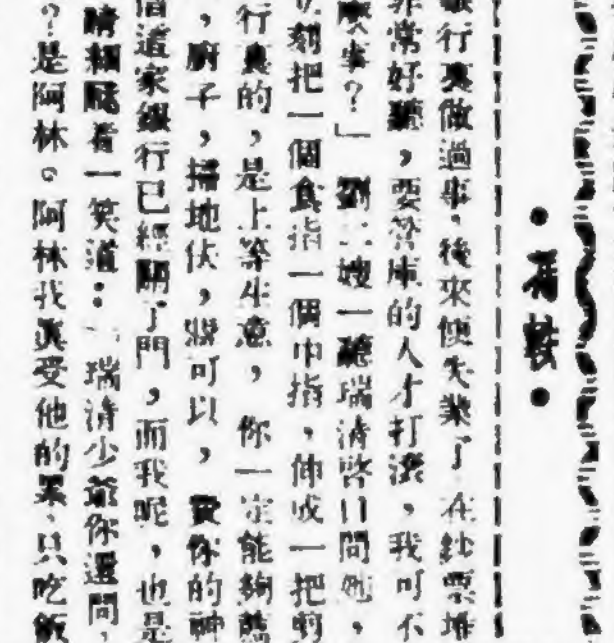 •馮蘅•
銀行裏做過事，後來便失業了，在鈔票堆
非常好聽，要管庫的人才打滾，我可不
麼事？」劉二嫂一聽瑞清啓口問她，
立刻把一個食指一個中指，伸成一把剪
行裏的，是上等生意，你一定能夠
，廚子，掃地伕，獃可以，費你的神
但這家銀行已經關了門，而我呢，也是
睛糊瞇着一笑道：「瑞清少爺你還問，
？是阿林。阿林我眞受他的累，只吃飯